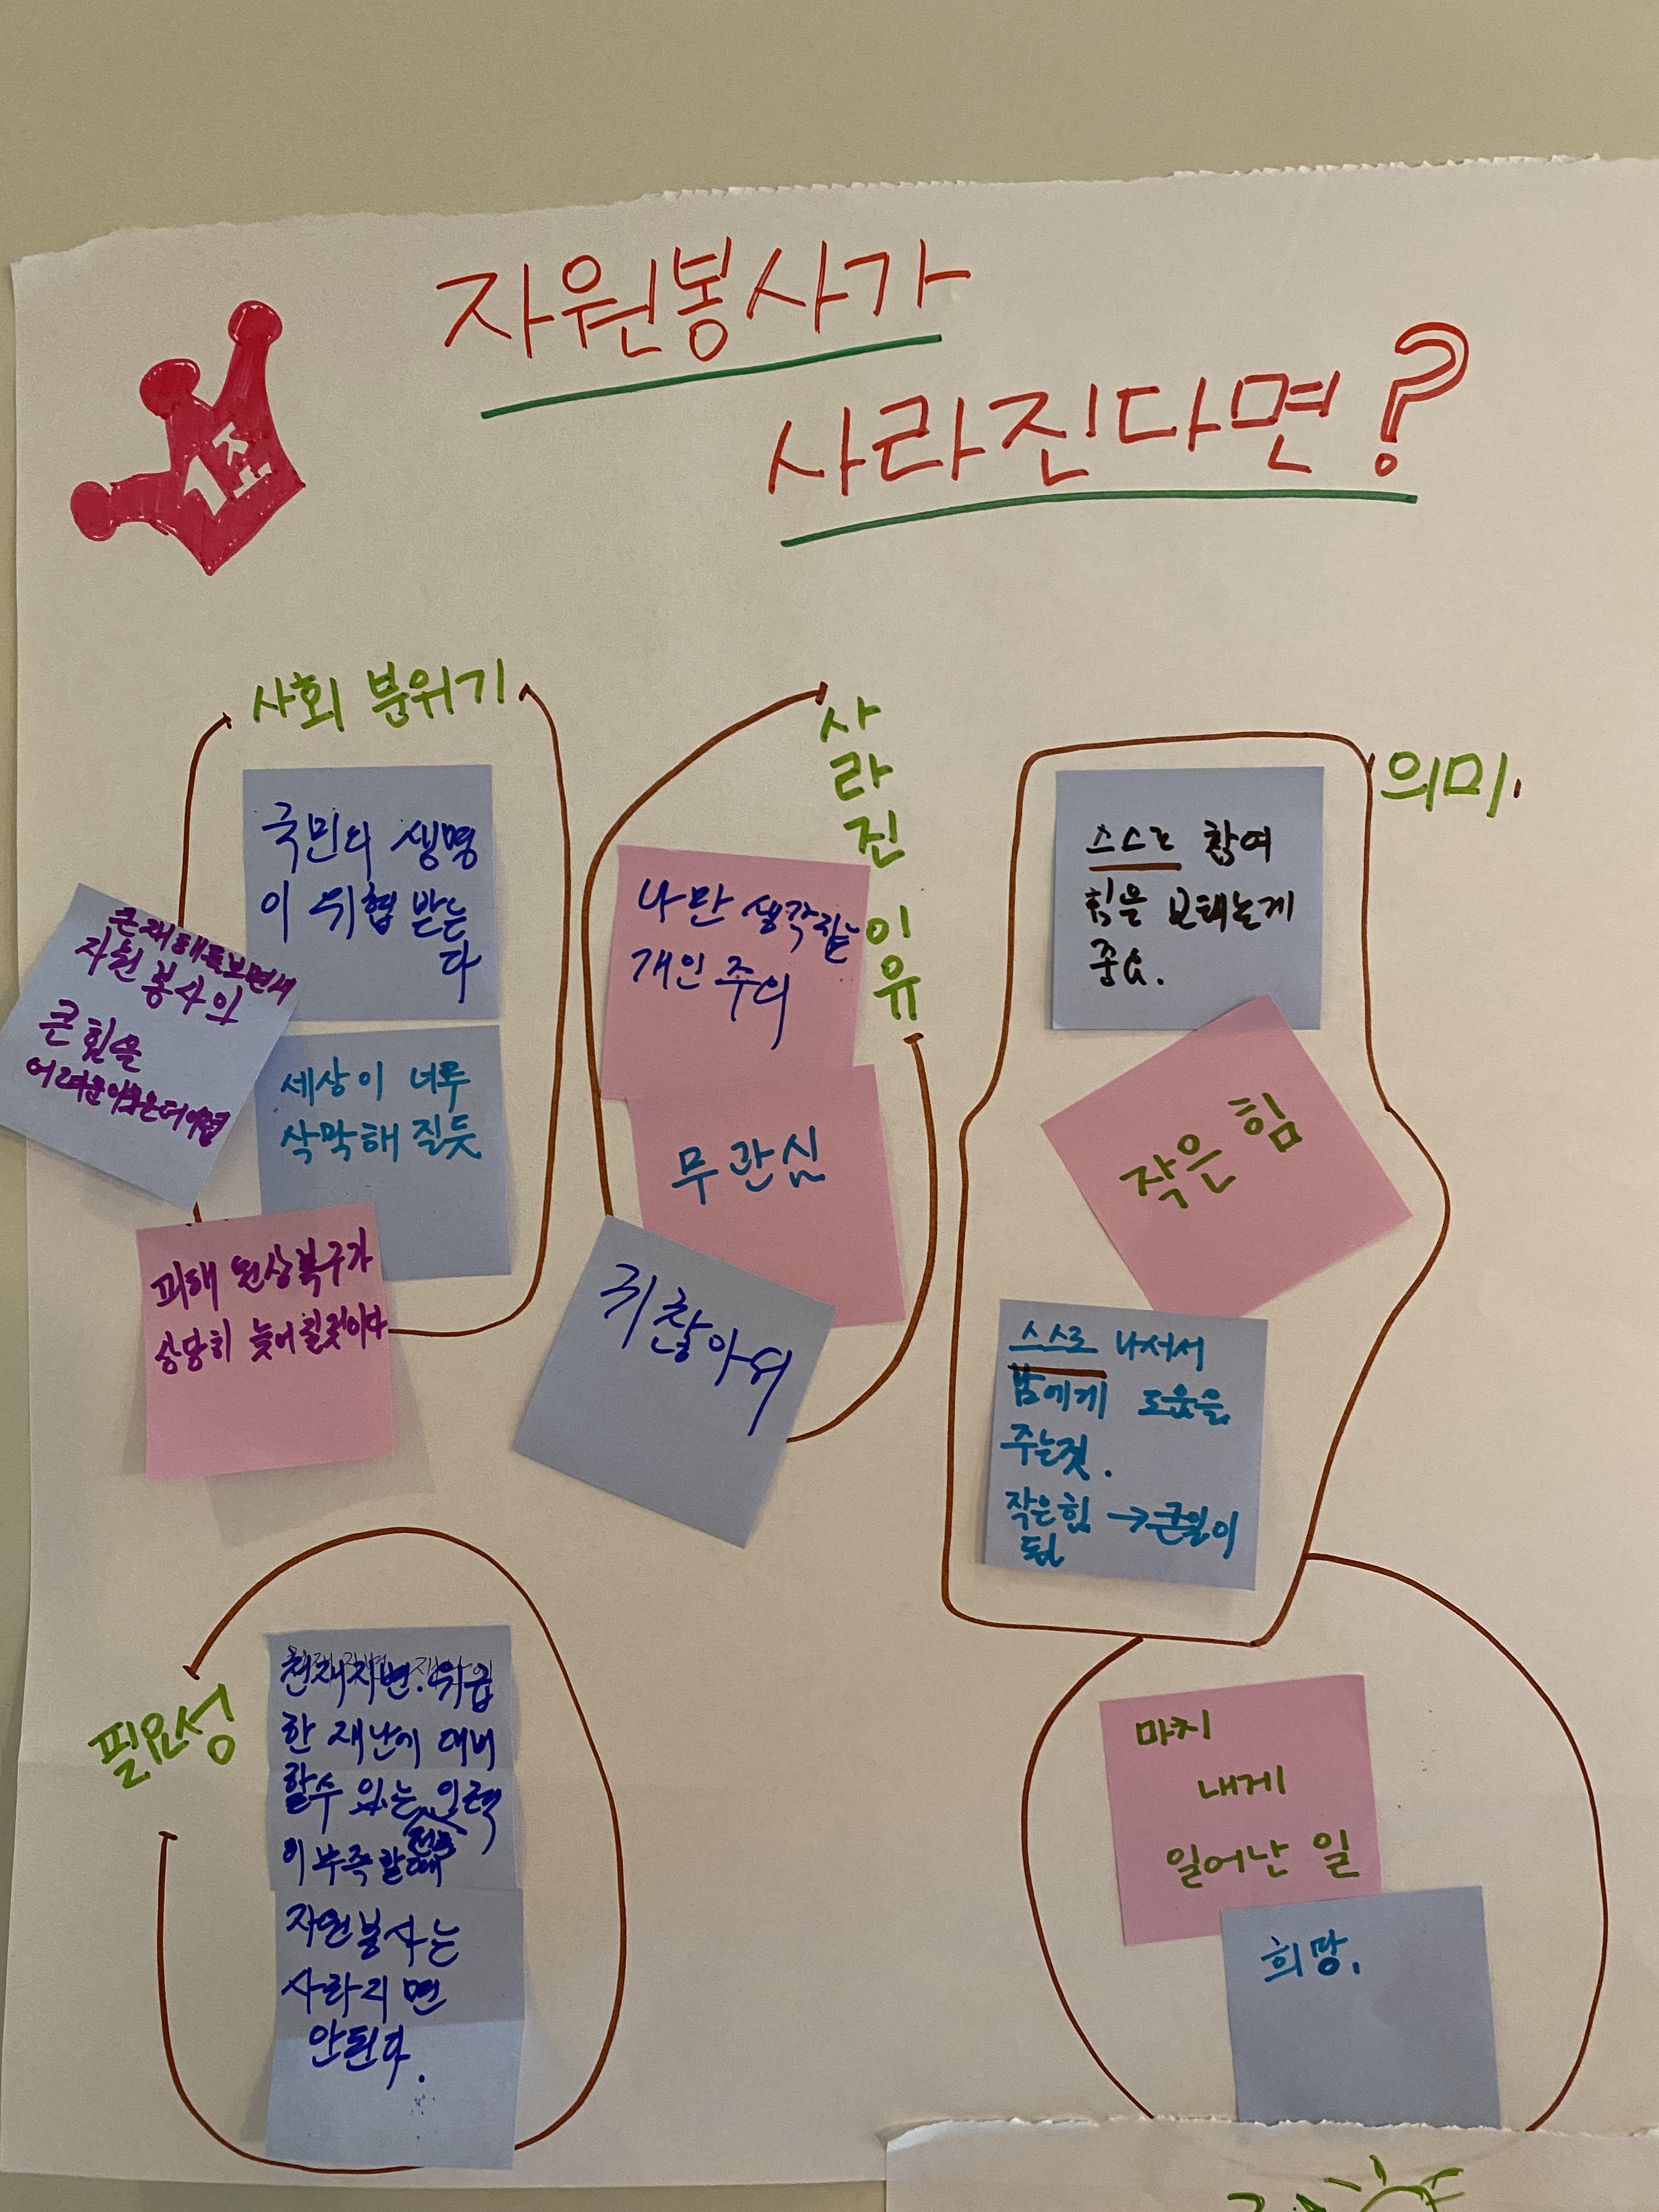 자원봉사가
사라진다면?
1조
사회 분위기
국민의 생명
이 위협 받는
다
큰 재해를보면서
자원 봉사의
큰 힘을
세상이 너무
삭막해 질듯
피해 원상복구가
상당히 늦어질것이다
사라진 이유
나만 생각하는
개인주의
무관심
귀찮아여
의미.
스스로 참여
힘을 보태는게
중요.
작은 힘
스스로 나서서
남에게 도움을
주는것.
작은힘 → 큰일이
됨
필요성
천재지변. 위급
한 재난에 대비
할수 있는 인력
이 부족할때
자원봉사는
사라지면
안된다.
마치
내게
일어난 일
희망.